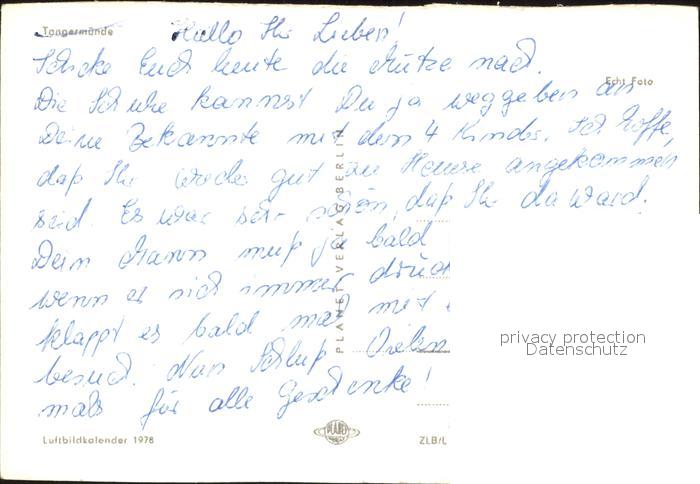 Tangermünde
Hallo Ihr Lieben!
Schicke Euch heute die Mütze nach.
Echt Foto
Die Schuhe kannst Du ja weggeben an
Deine Bekannte mit dem 4 Kinds. Ich hoffe,
daß Ihr wieder gut zu Hause angekommen
seid. Es war sehr schön, daß Ihr da ward.
Dein Mann muß ja bald
wenn er sich immer drück
klappt es bald mal mit
besuch. Nun Schluß Vielen
mals für alle Geschenke!
PLANET-VERLAG BERLIN
privacy protection
Datenschutz
Luftbildkalender 1978
PLANET
ZLB/L